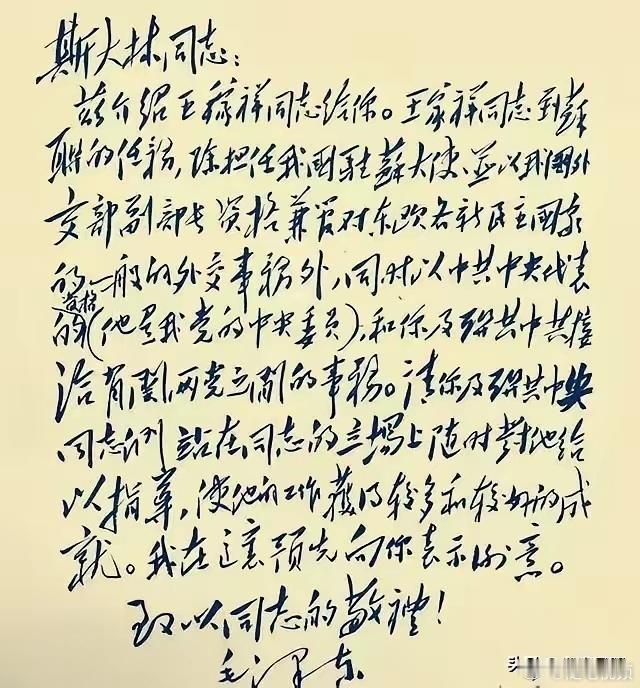 斯大林同志：
兹介绍王稼祥同志给你。王家祥同志到蘇
联的任務，除担任我国駐蘇大使、並以我国外
交部副部长资格兼管对东欧各新民主国家
的一般的外交事務外，同时以中共中央代表
资格
的（他是我党的中央委员），和你及联共中央接
洽有関两党之间的事務。请你及联共中央
同志们站在同志的立場上随时對他给
以指導，使他的工作獲得较多和较好的成
就。我在這裏预先向你表示谢意。
致以同志的敬禮！
毛泽东
头条